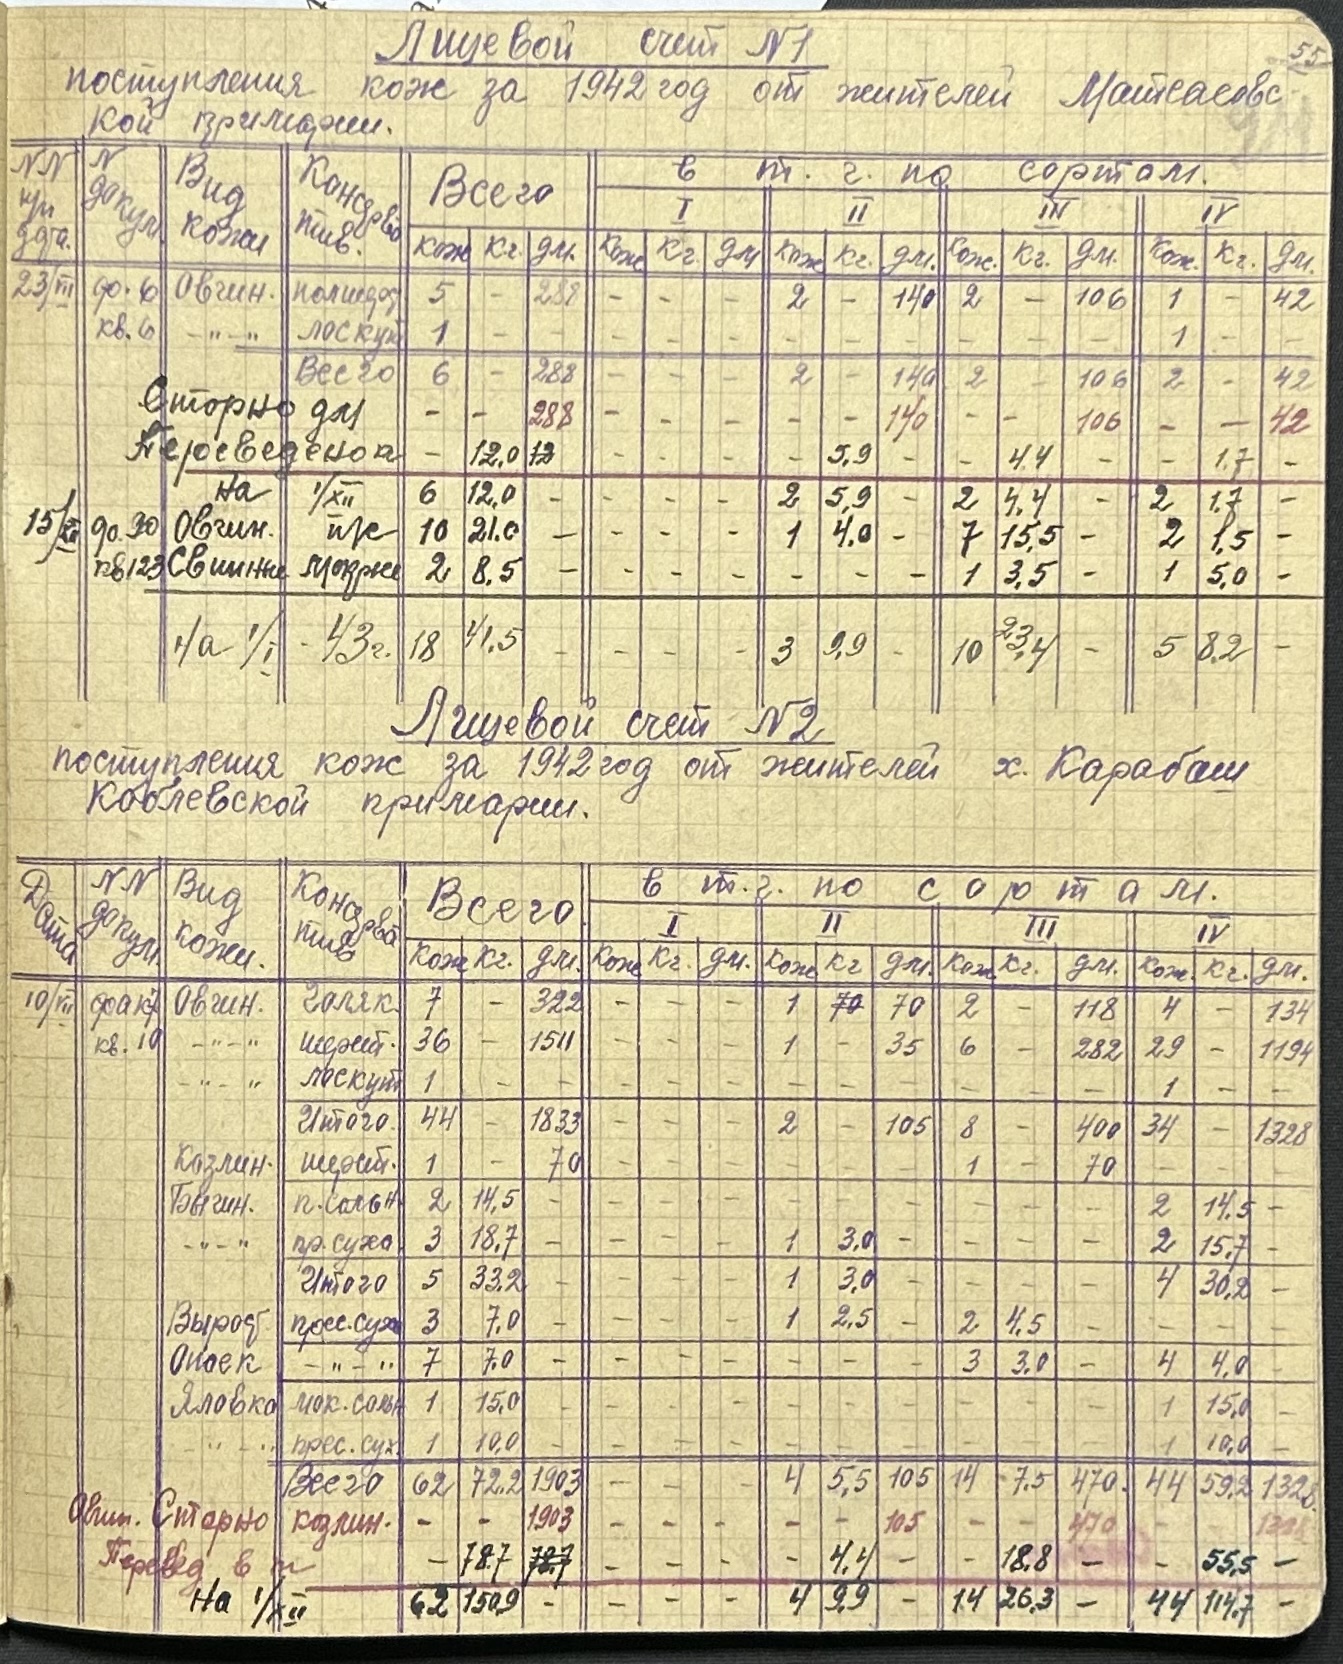 55
Лицевой счет N1
поступления кож за 1942 год от жителей
кой примарии.
NN N Вид Консерва Всего в т. ч. по сортам.
докум кожи тив. I II III IV
кож кг. дм. кож кг. дм кож кг. дм. кож. кг. дм. кож. кг. дм.
23/III Овчин. 5 - 288 - - - 2 - 140 2 - 106 1 - 42
кв. 6 -"-" лоскут 1 - - - - - - - - - - - 1 - -
Всего 6 - 288 - - - 2 - 140 2 - 106 2 - 42
Сторно дм - - 288 - - - - - 140 - - 106 - - 42
Переведено - 12,0 12 - - - - 5,9 - - 4,4 - - 1,7 -
на 1/XII 6 12,0 - - - - 2 5,9 - 2 4,4 - 2 1,7 -
15/XII Овчин. п/с 10 21.0 - - - - 1 4.0 - 7 15,5 - 2 1,5 -
кв 123 Свинные 2 8,5 - - - - - - - 1 3,5 - 1 5,0 -
На 1/I - 43 г. 18 41,5 - - - 3 9,9 - 10 23,4 - 5 8,2 -
Лицевой счет N2
поступления кож за 1942 год от жителей х. Карабаш
Коблевской примарии.
Дата NN докум. Вид кожи. Консерва тив Всего в т. ч. по сортам.
I II III IV
кож кг. дм. кож кг. дм. кож кг дм. кож кг. дм. кож. кг. дм.
10/III факт Овчин. 7 - 322 - - - 1 70 70 2 - 118 4 - 134
кв. 10 -"-" 36 - 1511 - - - 1 - 35 6 - 282 29 - 1194
-"-" лоскут 1 - - - - - - - - - - - 1 - -
Итого. 44 - 1833 - - - 2 - 105 8 - 400 34 - 1328
Козлин. 1 - 70 - - - - - - 1 - 70 - - -
Бычин. п. сольн. 2 14,5 - - - - - - - - - - 2 14,5 -
-"-" пр. сухо 3 18,7 - - - - 1 3,0 - - - - 2 15,7 -
Итого 5 33,2 - - - - 1 3,0 - - - - 4 30,2 -
Вырост. прес. сухо 3 7,0 - - - - 1 2,5 - 2 4,5 - - - -
Опоек -"-" 7 7.0 - - - - - - - 3 3,0 - 4 4,0 -
Яловка мок. сольн 1 15,0 - - - - - - - - - - 1 15,0 -
-"-" прес. сух. 1 10,0 - - - - - - - - - - 1 10,0 -
Всего 62 72,2 1903 - - - 4 5,5 105 14 7.5 470. 44 59,2 1328.
Овчин. Сторно козлин. - - 1903 105 470 1328
Перевед в кг - 78.7 78.7 - - - - 4,4 - - 18.8 - - 55,5 -
На 1/XII 62 150,9 - - - - 4 9,9 - 14 26,3 - 44 114,7 -